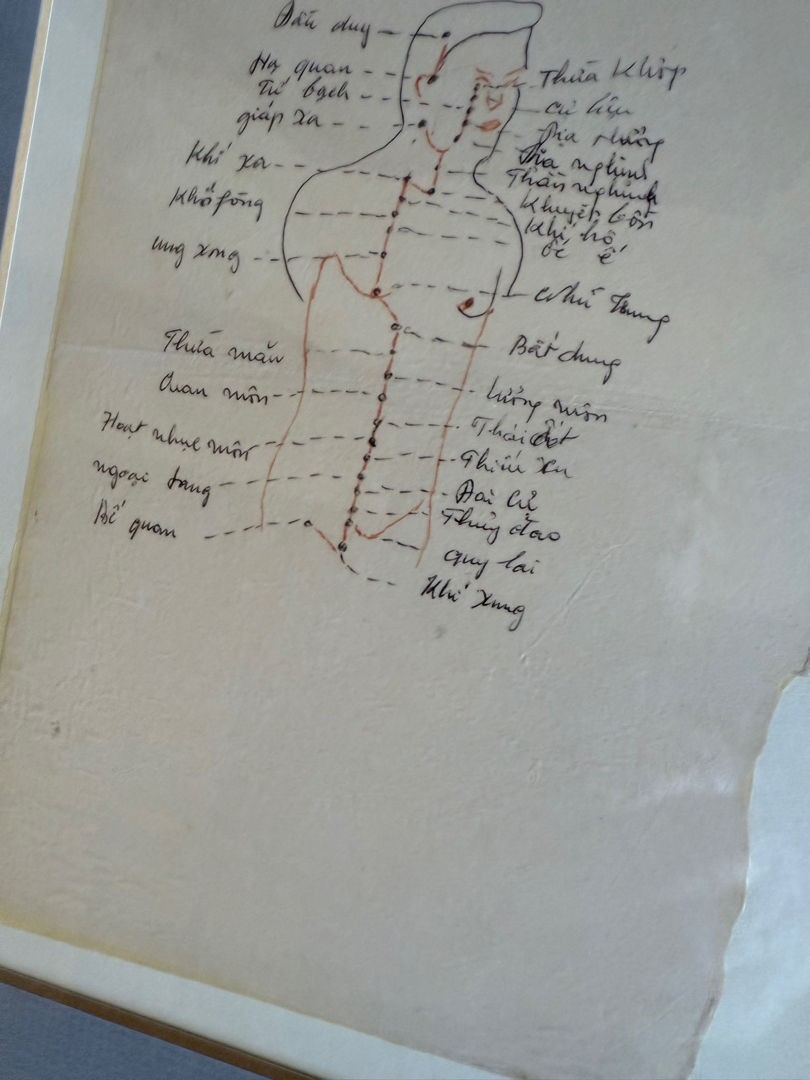 Đầu duy
Hạ quan
Tứ bạch
giáp xa
Khí xa
Khố fòng
ung xong
Thừa mãn
Quan môn
Hoạt nhục môn
ngoại lang
Bễ quan
Thừa Khốp
cự liêu
Địa thương
Địa nghinh
Nhân nghinh
Khuyết bồn
Khí hộ
ốc ế
Nhũ trung
Bất dung
lương môn
Thái ất
Thiên xu
Đại cự
Thủy đạo
quy lai
Khí xung